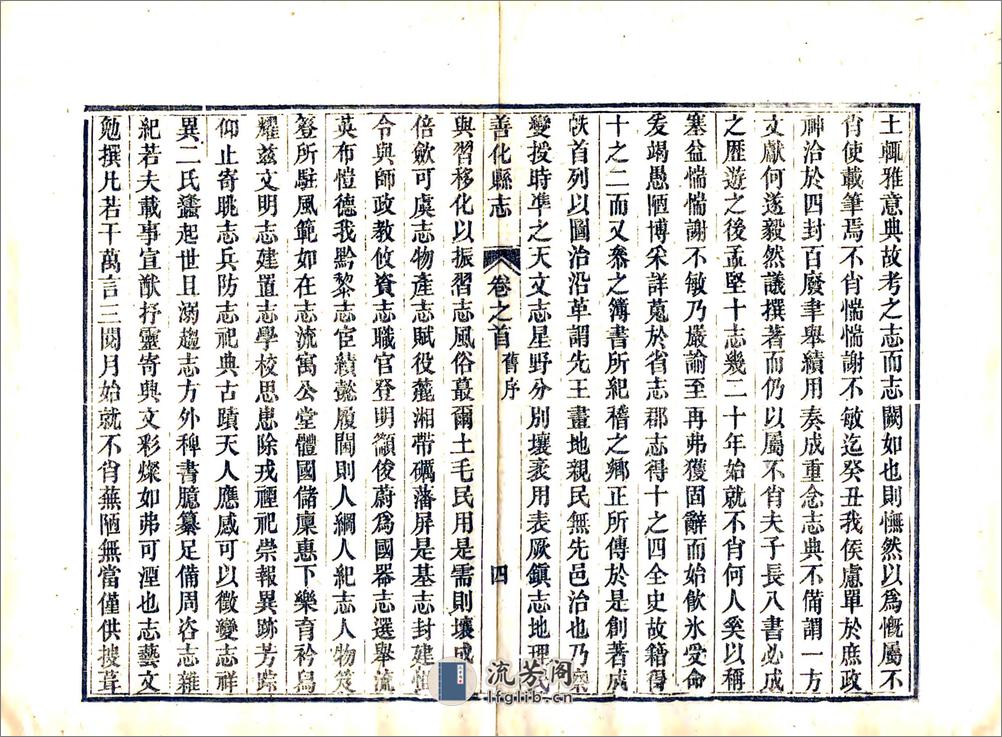 土輒雅意典故考之志而志闕如也則憮然以爲慨屬不
肖使載筆焉不肖惴惴謝不敏迄癸丑我侯慮單於庶政
神洽於四封百廢聿舉績用奏成重念志典不備謂一方
文獻何遂毅然議撰著而仍以屬不肖夫子長八書必成
之歷遊之後孟堅十志幾二十年始就不肖何人奚以稱
塞益惴惴謝不敏乃嚴諭至再弗獲固辭而始飲氷受命
爰竭愚陋博采詳蒐於省志郡志得十之四全史故籍得
十之二而又叅之簿書所紀稽之鄉正所傳於是創著成
帙首列以圖治沿革謂先王畫地親民無先邑治也乃察
變授時準之天文志星野分別壤袤用表厥鎮志地理
善化縣志
卷之首 舊序
四
與習移化以振習志風俗蕞爾土毛民用是需則壤成
倍歛可虞志物產志賦役麓湘帶礪藩屏是基志封建
令與師政教攸資志職官登明籲俊蔚爲國器志選舉流
英布愷德我黔黎志宦績懿履閫則人綱人紀志人物笈
簦所駐風範如在志流寓公堂體國儲廩惠下樂育衿烏
耀茲文明志建置志學校思患除戎禋祀崇報異跡芳踪
仰止寄眺志兵防志祀典古蹟天人應感可以徵變志祥
異二氏蠭起世且溺趨志方外稗書臆纂足備周咨志雜
紀若夫載事宣猷抒靈寄興文彩燦如弗可湮也志藝文
勉撰凡若干萬言三閱月始就不肖蕪陋無當僅供搜葺
流芳阁
lfglib.cn